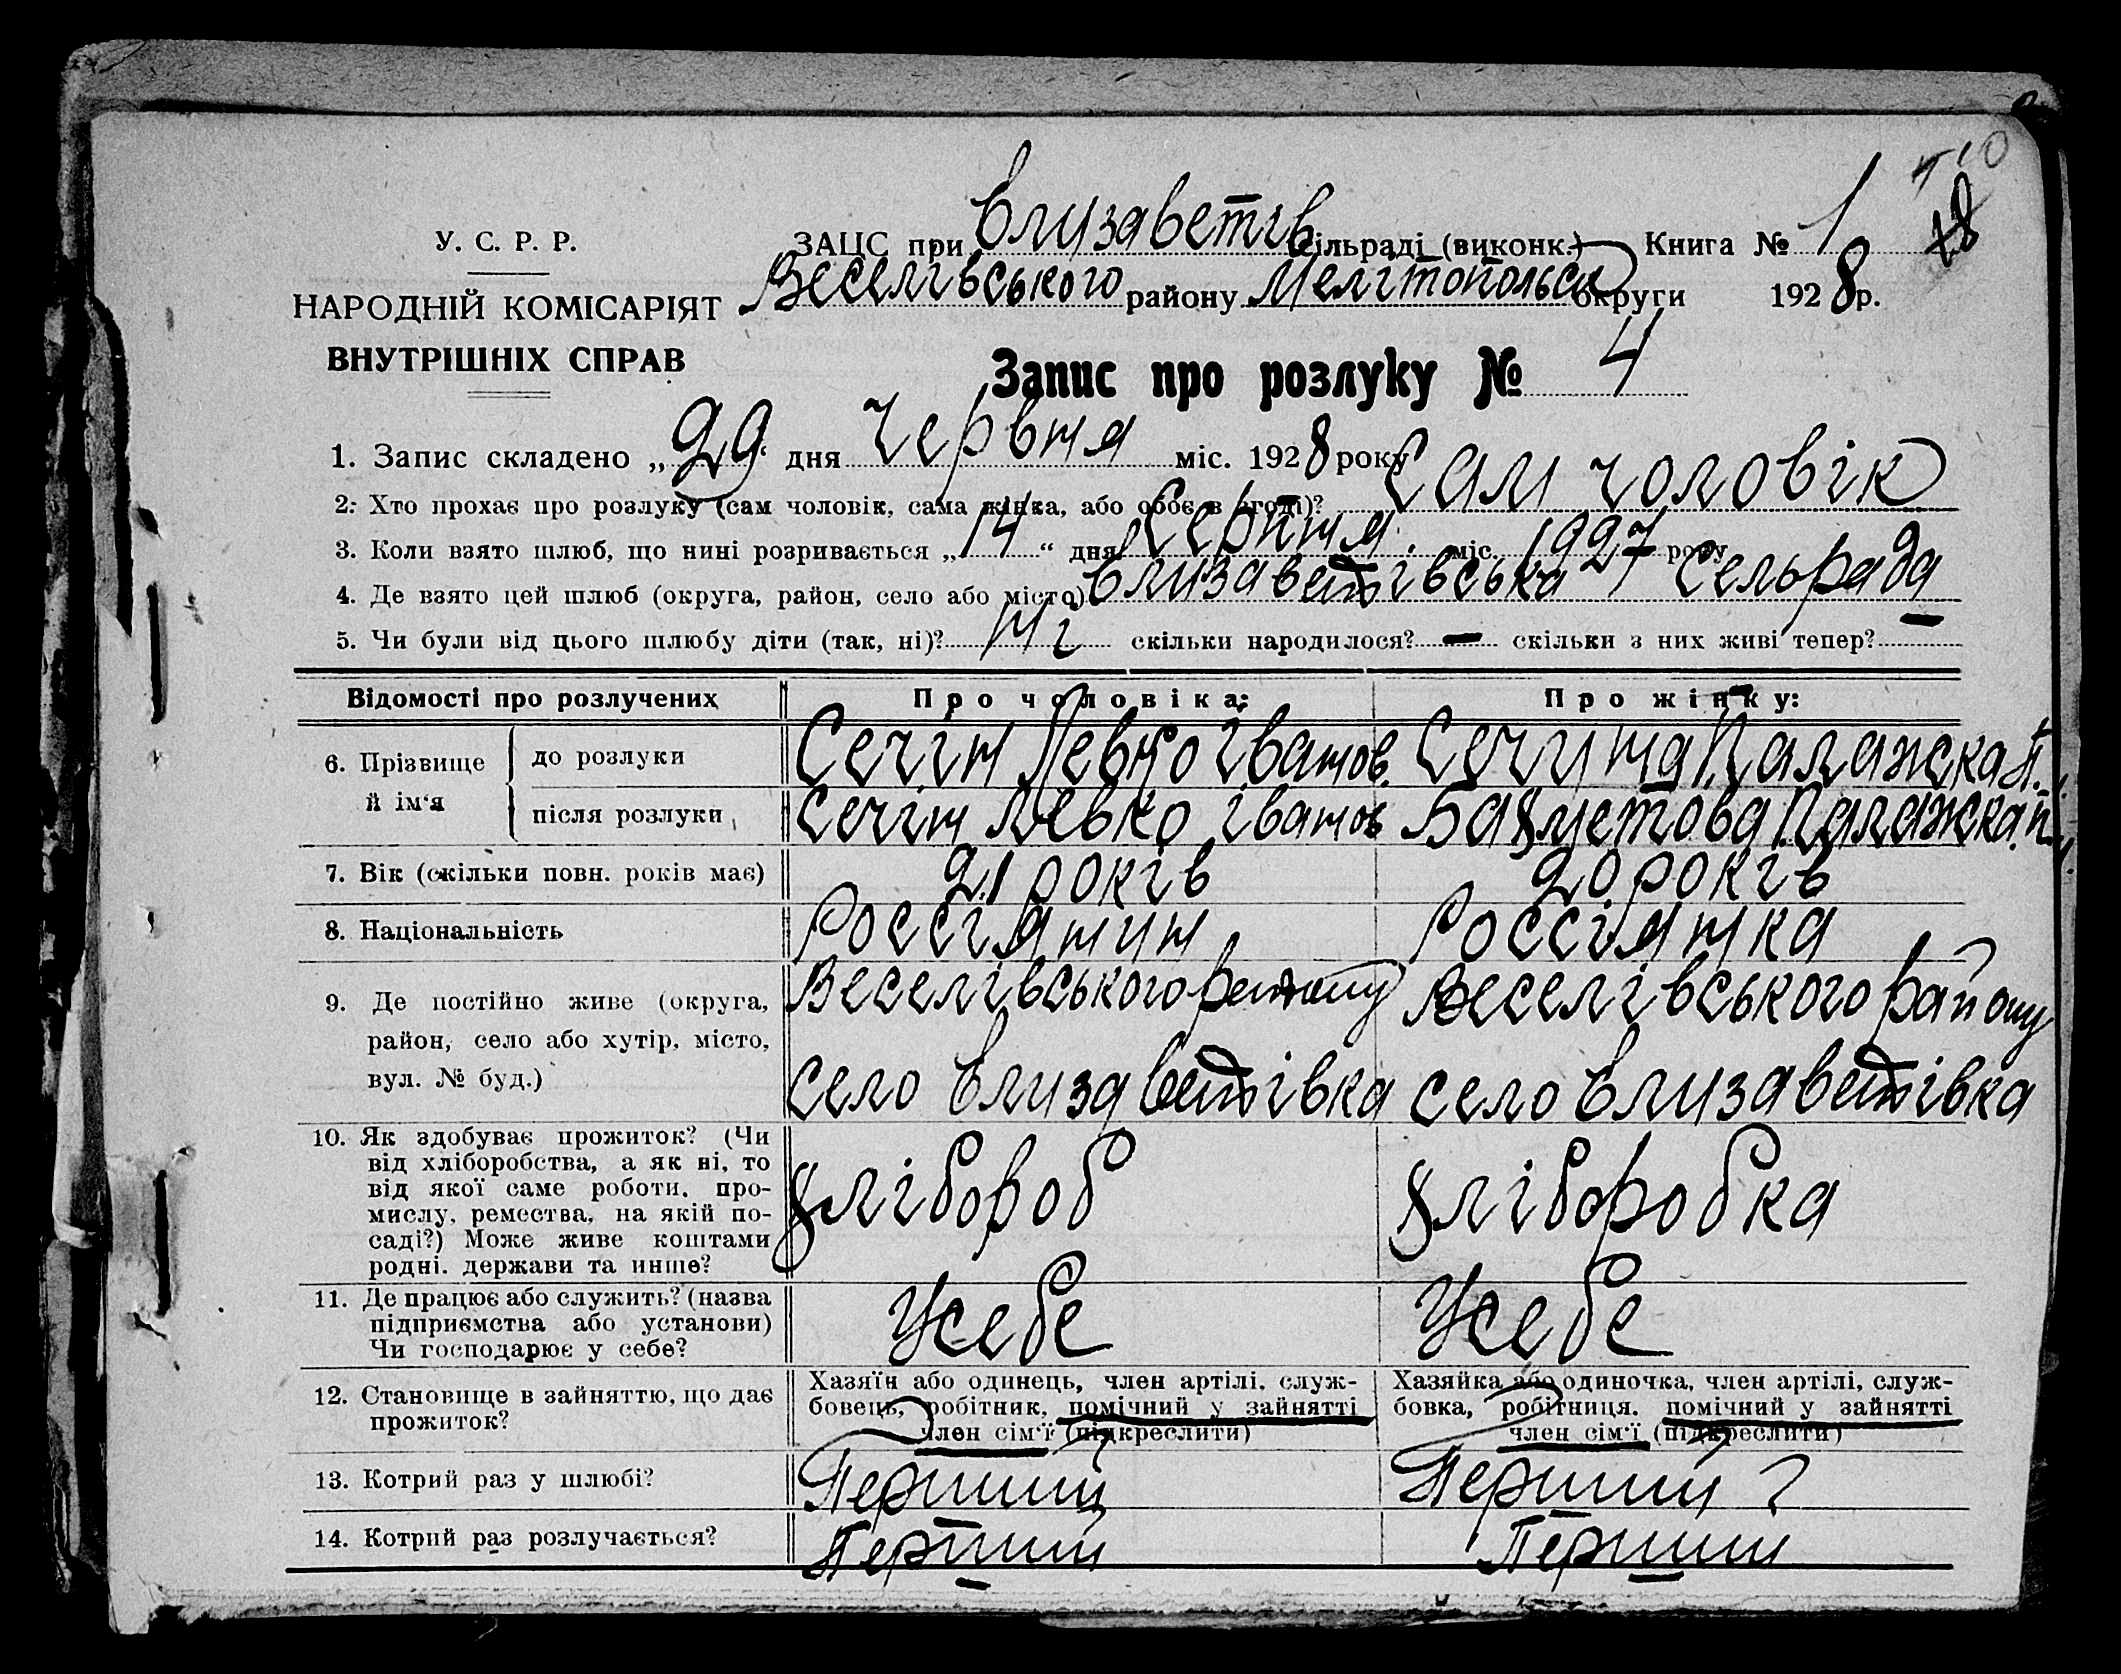 У. С. Р. Р.
НАРОДНІЙ КОМІСАРІЯТ
ВНУТРІШНІХ СПРАВ
ЗАЦС при Єлизаветів сільраді (виконк.) Книга № 1
Веселівського району Мелітопольск округи 1928 р.
Запис про розлуку № 4
1. Запис складено „29“ дня Червня міс. 1928 року
2. Хто прохає про розлуку (сам чоловік, сама жінка, або обоє в згоді)? Сам чоловік
3. Коли взято шлюб, що нині розривається „14“ дня Серпня міс. 1927 року
4. Де взято цей шлюб (округа, район, село або місто) Єлизаветівська Сельрада
5. Чи були від цього шлюбу діти (так, ні)? Ні скільки народилося? — скільки з них живі тепер? —
Відомості про розлучених Про чоловіка: Про жінку:
6. Прізвище й ім'я
до розлуки Сечін Левко Іванов. Сечина Палажска П.
після розлуки Сечін Левко Іванов Бахметова Палажска П.
7. Вік (скільки повн. років має) 21 років 20 років
8. Національність Россіянин Россіянка
9. Де постійно живе (округа, Веселівського району Веселівського району
район, село або хутір, місто,
вул. № буд.) село Єлизаветівка село Єлизаветівка
10. Як здобуває прожиток? (Чи
від хліборобства, а як ні, то
від якої саме роботи, про-
мислу, ремества, на якій по-
саді?) Може живе коштами
родні, держави та инше?
хлібороб хліборобка
11. Де працює або служить? (назва
підприємства або установи)
Чи господарює у себе?
Усебе Усебе
12. Становище в зайняттю, що дає
прожиток?
Хазяїн або одинець, член артілі, служ-
бовець, робітник, помічний у зайнятті
член сім'ї (підкреслити)
Хазяйка або одиночка, член артілі, служ-
бовка, робітниця, помічний у зайнятті
член сім'ї (підкреслити)
13. Котрий раз у шлюбі? Перший Перший
14. Котрий раз розлучається? Перший Перший